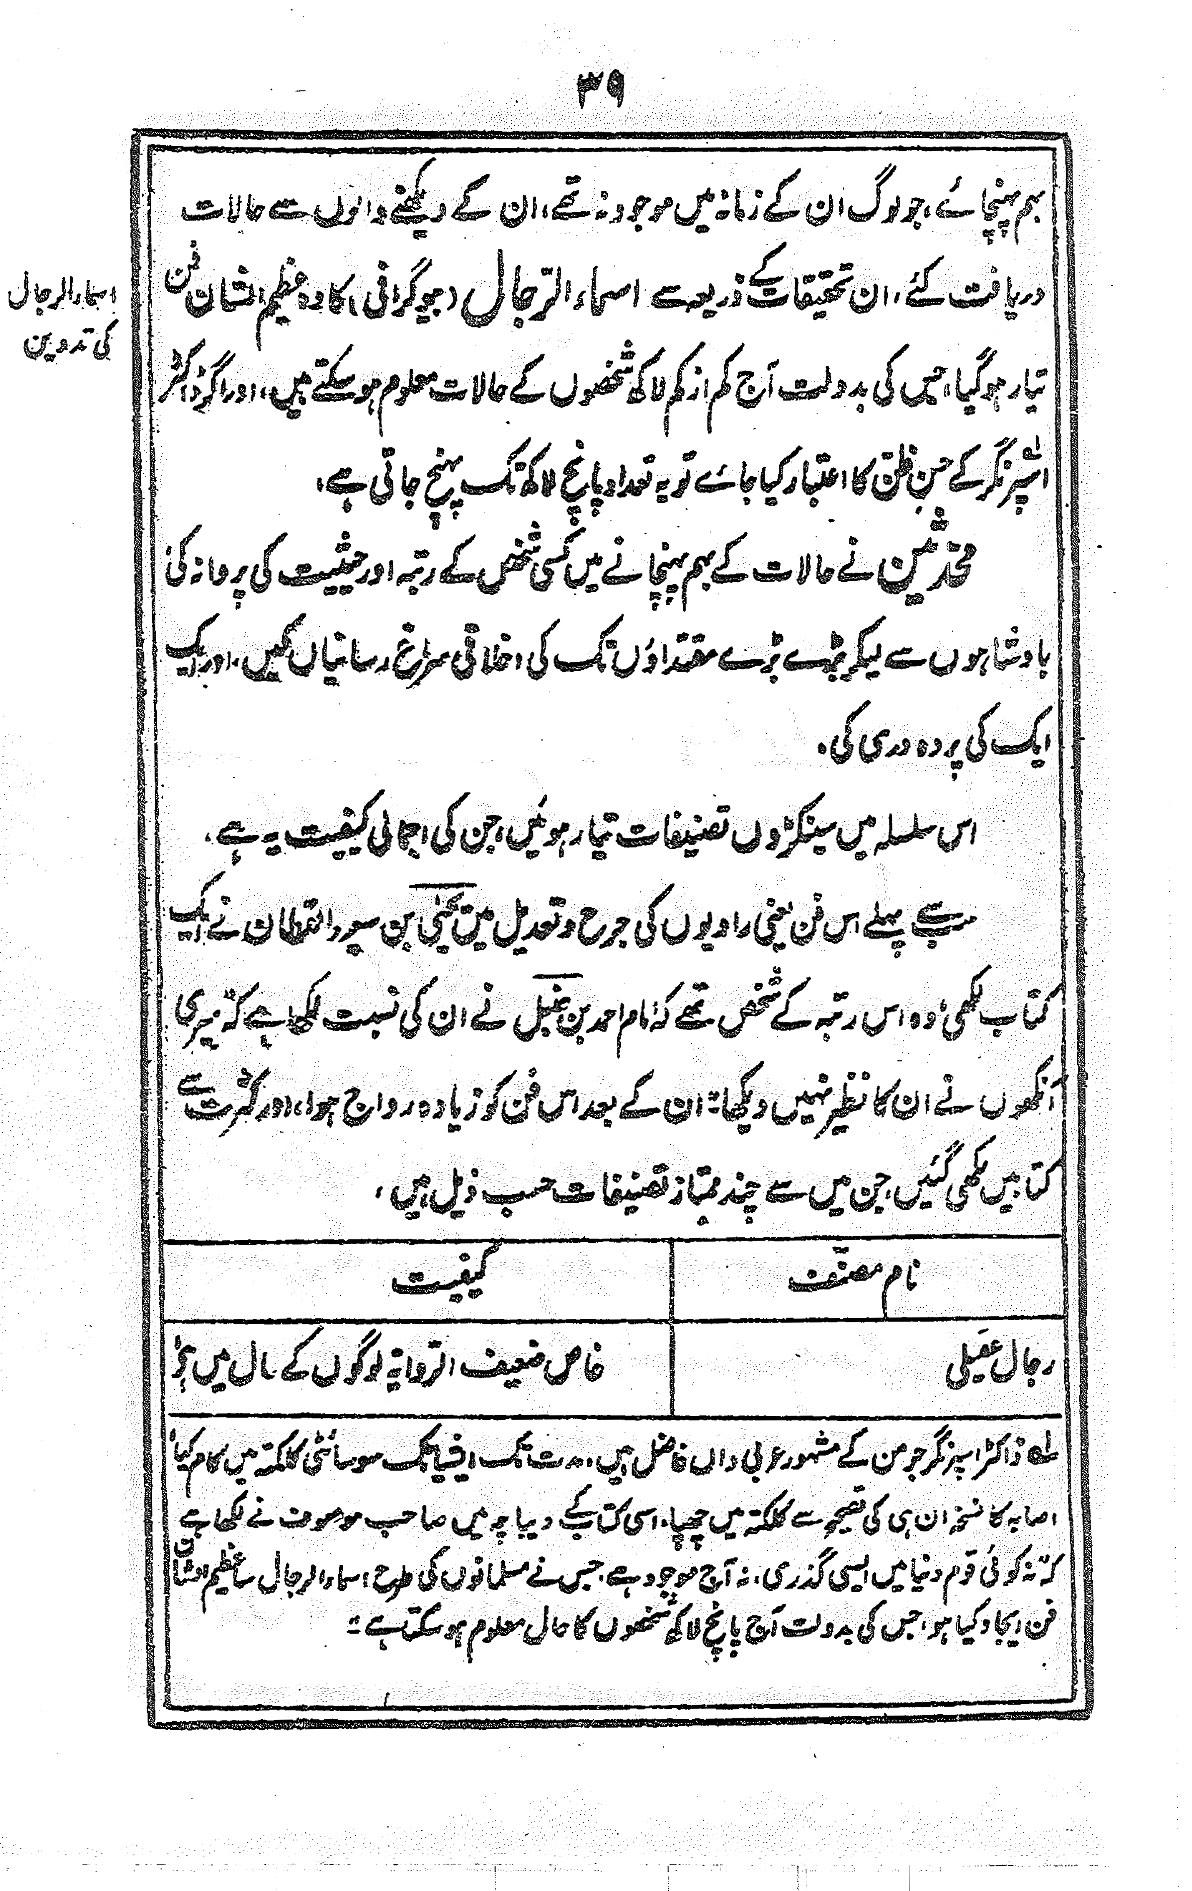 ۳۹
بہم پہنچائے، جو لوگ ان کے زمانہ میں موجود نہ تھے، ان کے دیکھنے والوں سے حالات
دریافت کئے، ان تحقیقات کے ذریعہ سے اسماء الرّجال (بیوگرافی) کا وہ عظیم الشان فن
اسماء الرجال
کی تدوین
تیار ہو گیا، جس کی بدولت آج کم از کم لاکھ شخصوں کے حالات معلوم ہو سکتے ہیں، اور اگر ڈاکٹر
اسپرنگر کے حسنِ ظن کا اعتبار کیا جائے تو یہ تعداد پانچ لاکھ تک پہنچ جاتی ہے،
محدثین نے حالات کے بہم پہنچانے میں کسی شخص کے رتبہ اور حیثیت کی پروا نہ کی
بادشاہوں سے لیکر بڑے بڑے مقتداؤں تک کی اخلاقی سراغ رسانیاں کیں، اور ایک
ایک کی پردہ دری کی،
اس سلسلہ میں سینکڑوں تصنیفات تیار ہوئیں، جن کی اجمالی کیفیت یہ ہے،
سب سے پہلے اس فن یعنی راویوں کی جرح و تعدیل میں یحییٰ بن سعید القطان نے ایک
کتاب لکھی، وہ اس رتبہ کے شخص تھے کہ امام احمد بن حنبل نے ان کی نسبت لکھا ہے کہ "میری
آنکھوں نے ان کا نظیر نہیں دیکھا" ان کے بعد اس فن کو زیادہ رواج ہوا، اور کثرت سے
کتابیں لکھی گئیں، جن میں سے چند ممتاز تصنیفات حسب ذیل ہیں،
نام مصنّف
کیفیت
رجال عقیلی
خاص ضعیف الرّوایۃ لوگوں کے حال میں ہے
لہ ڈاکٹر اسپرنگر جرمن کے مشہور عربی داں فاضل ہیں، مدت تک ایشیاٹک سوسائٹی کلکتہ میں کام کیا،
اصابہ کا نسخہ ان ہی کی تصحیح سے کلکتہ میں چھپا، اسی کتاب کے دیباچہ میں صاحب موصوف نے لکھا ہے
کہ "نہ کوئی قوم دنیا میں ایسی گذری، نہ آج موجود ہے، جس نے مسلمانوں کی طرح اسماء الرجال سا عظیم الشان
فن ایجاد کیا ہو، جس کی بدولت آج پانچ لاکھ شخصوں کا حال معلوم ہو سکتا ہے"